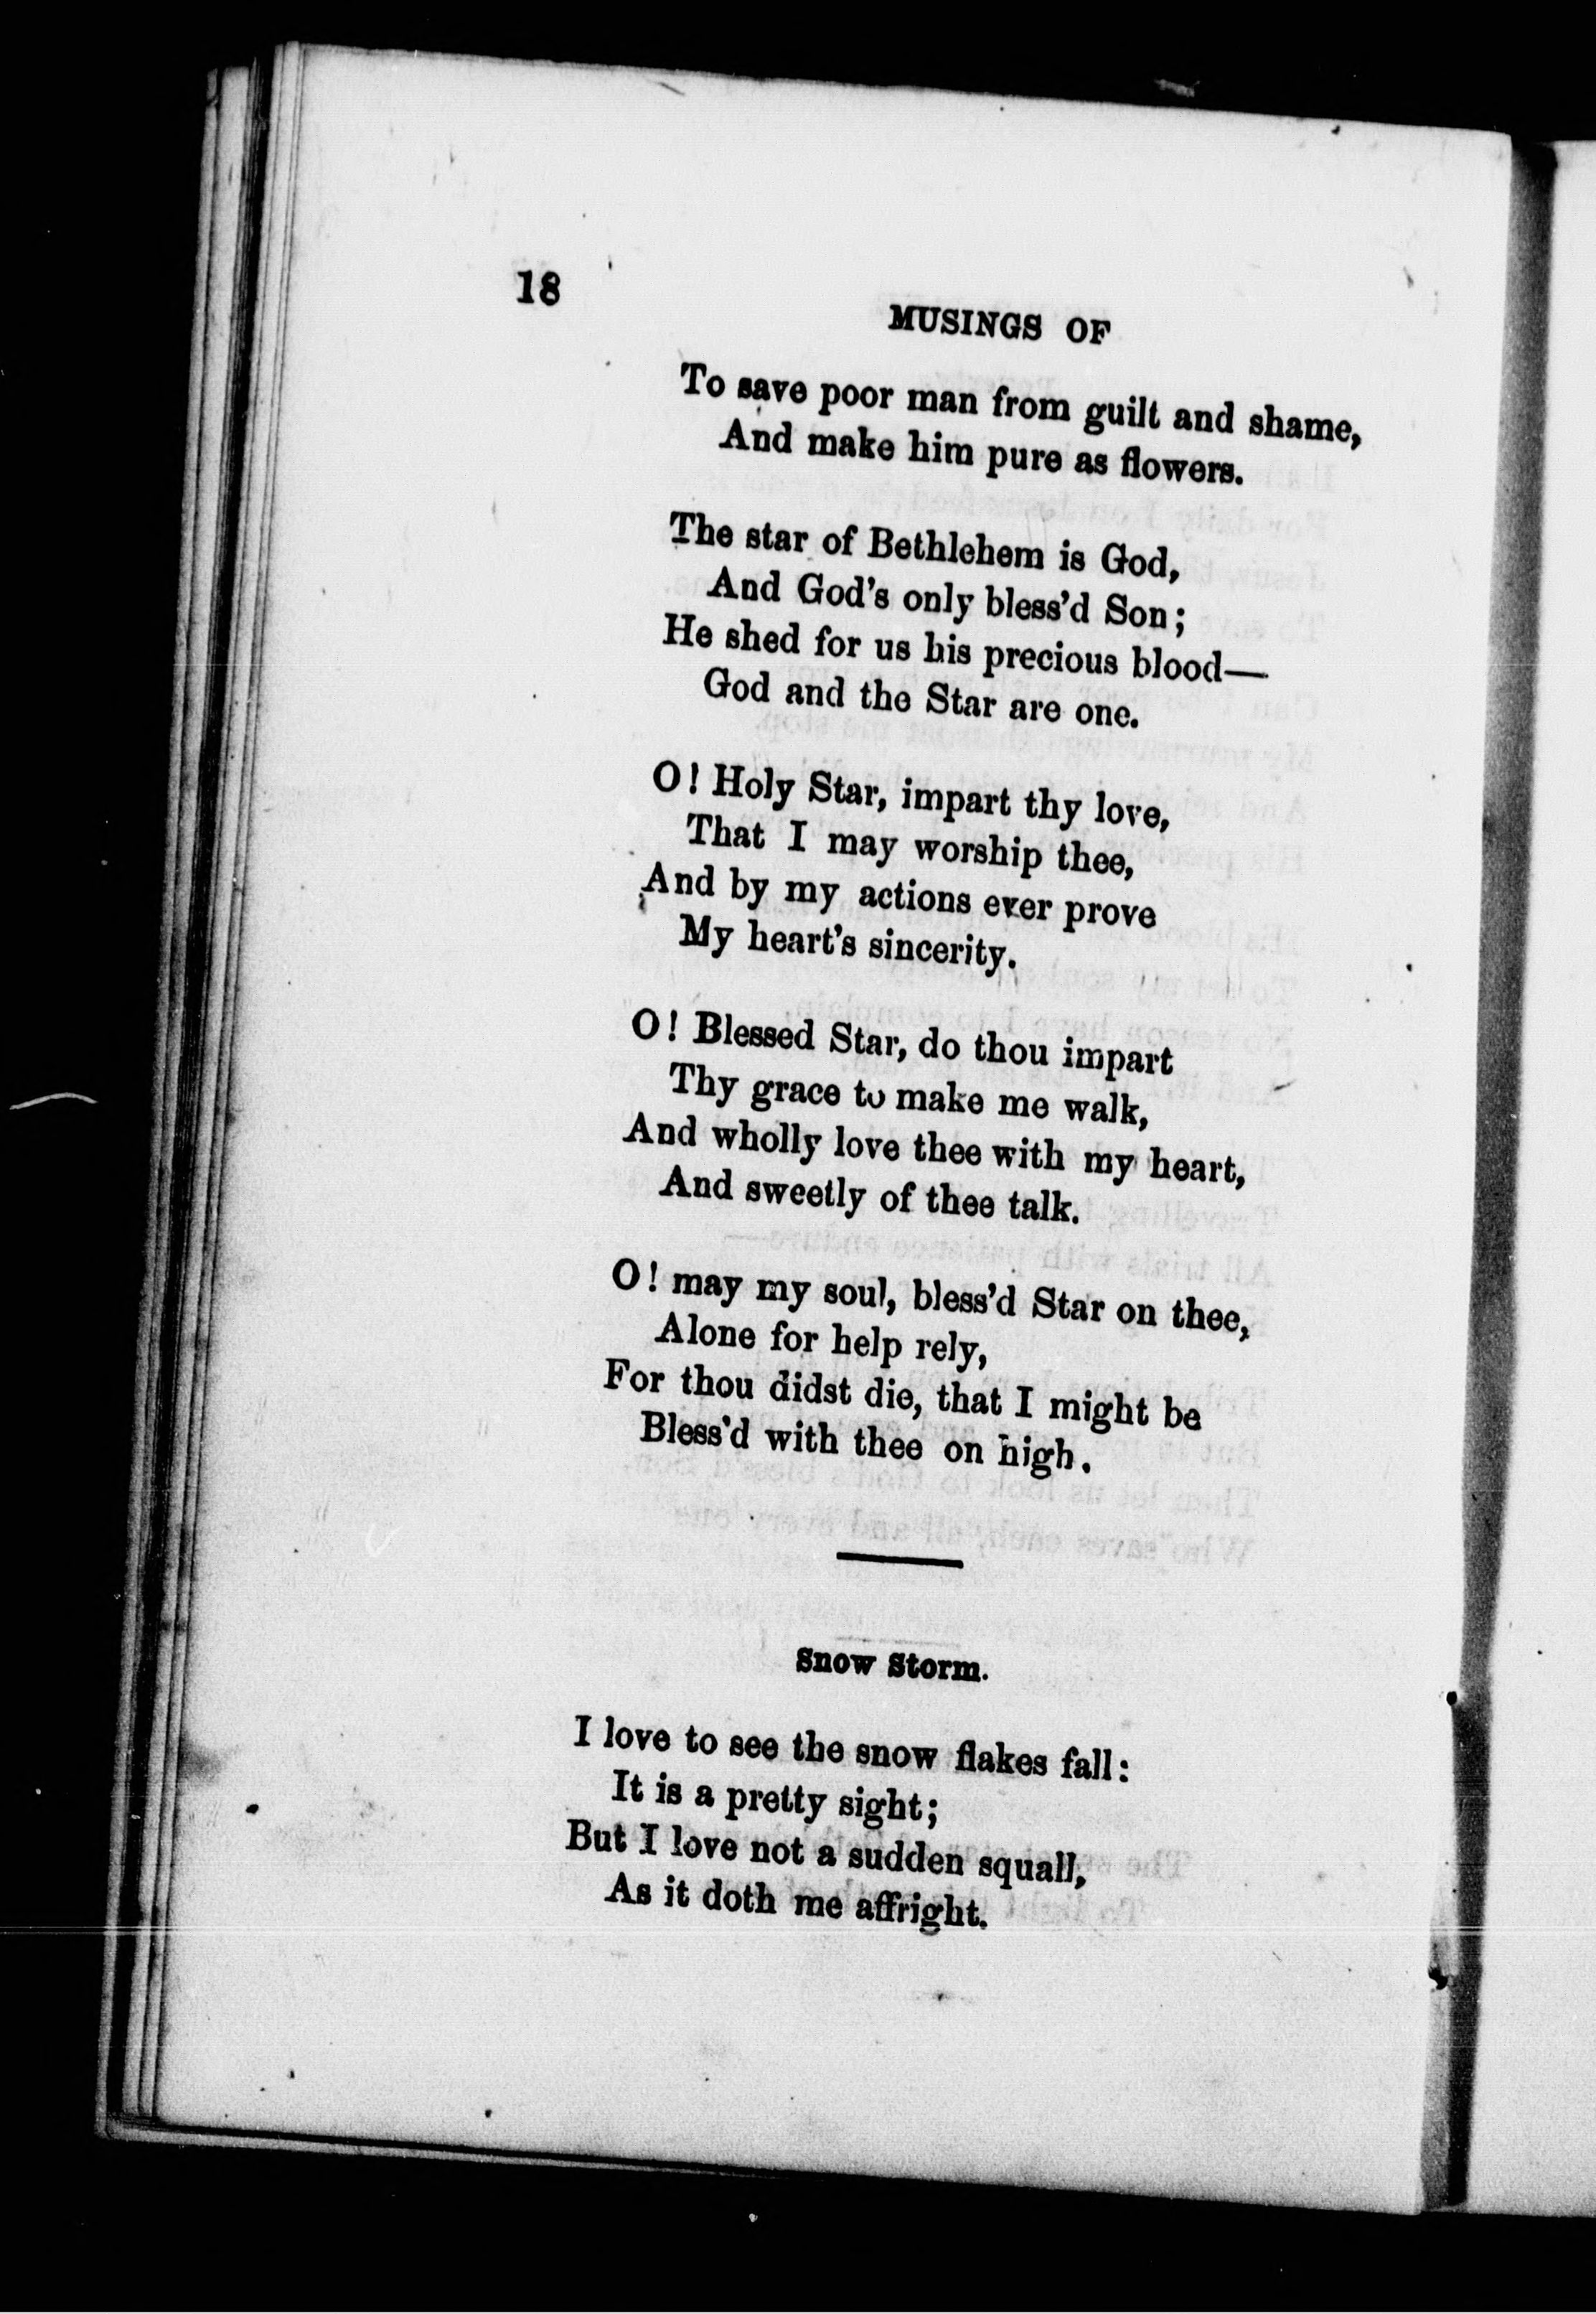 18
MUSINGS OF
To save poor man from guilt and shame,
And make him pure as flowers.
The star of Bethlehem is God,
And God's only bless'd Son;
He shed for us his precious blood—
God and the Star are one.
O! Holy Star, impart thy love,
That I may worship thee,
And by my actions ever prove
My heart's sincerity.
O! Blessed Star, do thou impart
Thy grace to make me walk,
And wholly love thee with my heart,
And sweetly of thee talk.
O! may my soul, bless'd Star on thee,
Alone for help rely,
For thou didst die, that I might be
Bless'd with thee on high.
Snow Storm.
I love to see the snow flakes fall:
It is a pretty sight;
But I love not a sudden squall,
As it doth me affright.